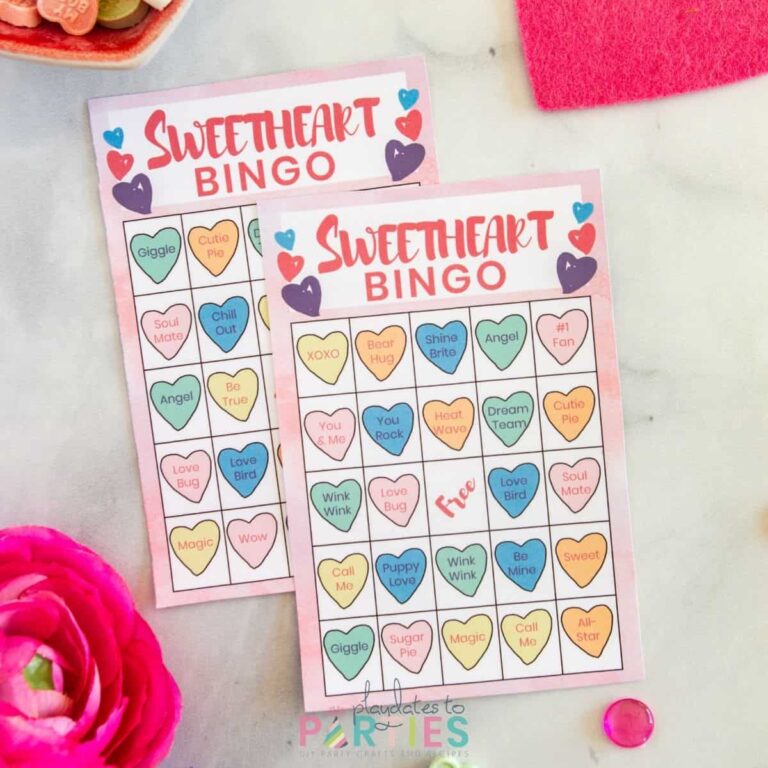 SWEETHEART
BINGO
Giggle
Cutie
Pie
Soul
Mate
Chill
Out
Angel
Be
True
Love
Bug
Love
Bird
Magic
Wow
SWEETHEART
BINGO
XOXO
Bear
Hug
Shine
Brite
Angel
#1
Fan
You
& Me
You
Rock
Heat
Wave
Dream
Team
Cutie
Pie
Wink
Wink
Love
Bug
Free
Love
Bird
Soul
Mate
Call
Me
Puppy
Love
Wink
Wink
Be
Mine
Sweet
Giggle
Sugar
Pie
Magic
Call
Me
All-
Star
playdates to
PARTIES
DIY PARTY CRAFTS AND RECIPES